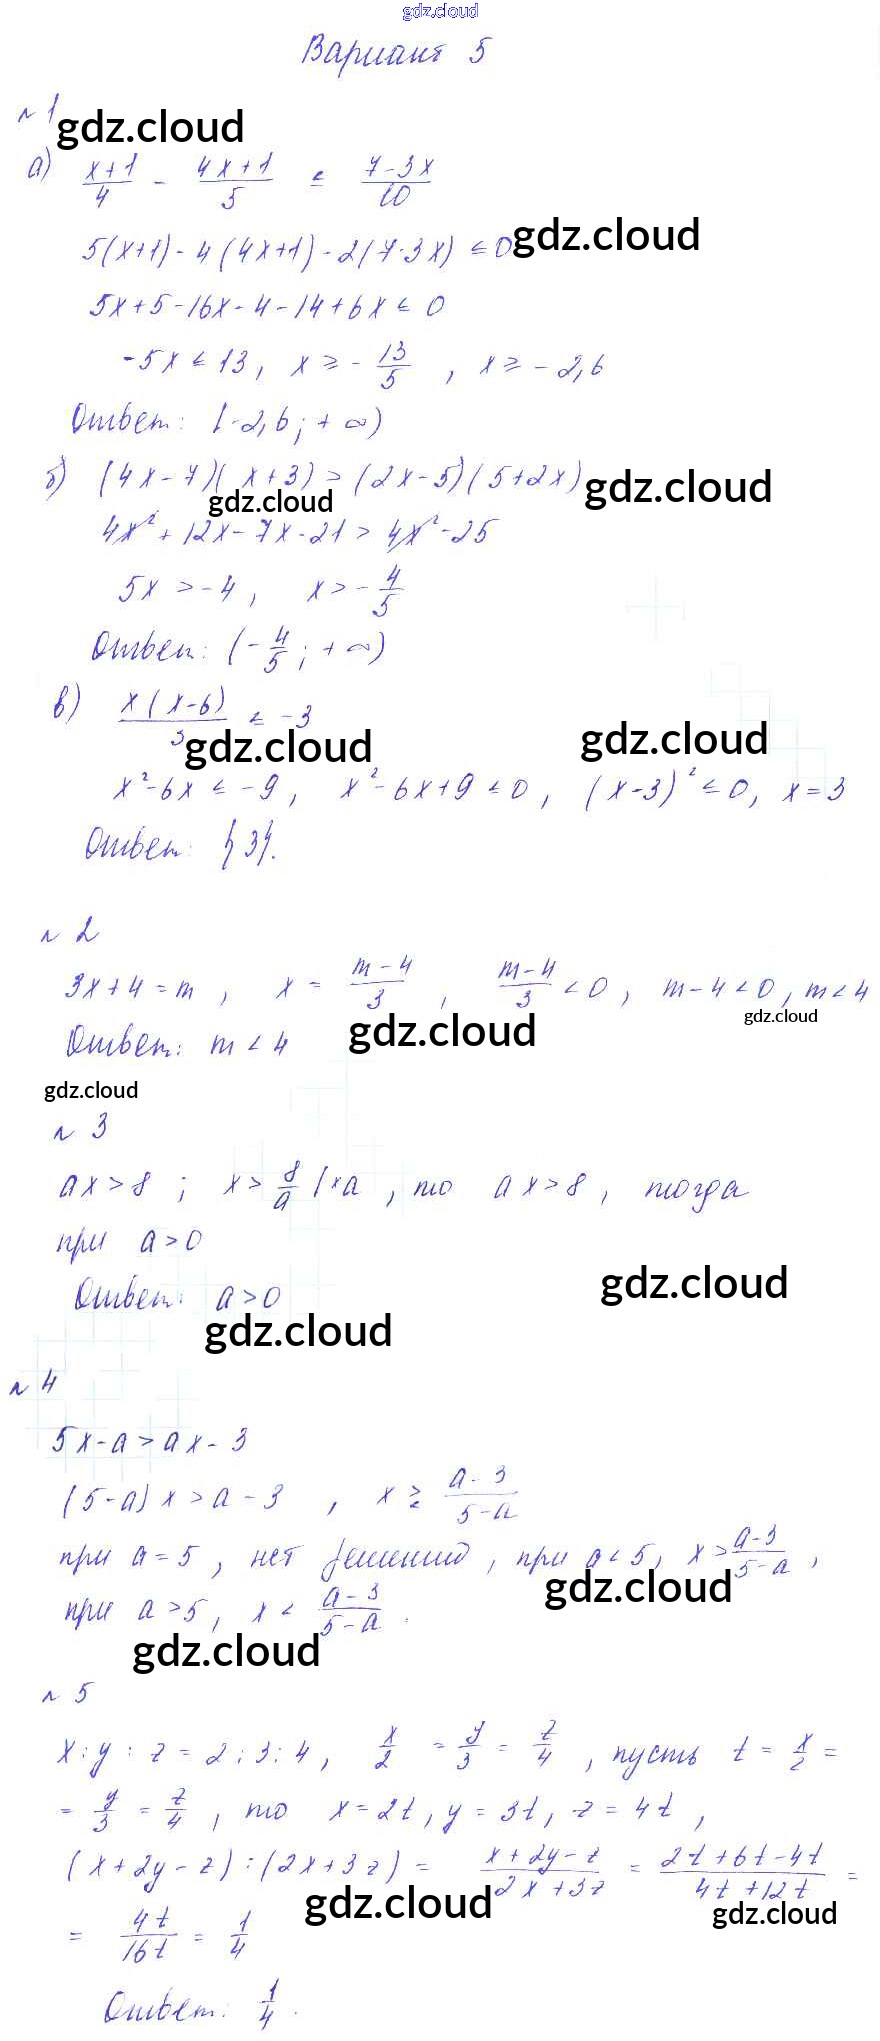 gdz.cloud
Вариант 5
№ 1
gdz.cloud
а) (x+1)/4 - (4x+1)/5 ≤ (7-3x)/10
5(x+1) - 4(4x+1) - 2(7-3x) ≤ 0
gdz.cloud
5x+5-16x-4-14+6x ≤ 0
-5x ≤ 13, x ≥ -13/5, x ≥ -2,6
Ответ: [-2,6; +∞)
б) (4x-7)(x+3) > (2x-5)(5+2x)
gdz.cloud
gdz.cloud
4x² + 12x - 7x - 21 > 4x² - 25
5x > -4, x > -4/5
Ответ: (-4/5; +∞)
в) x(x-6)/3 ≤ -3
gdz.cloud
gdz.cloud
x²-6x ≤ -9, x²-6x+9 ≤ 0, (x-3)² ≤ 0, x=3
Ответ: {3}.
№ 2
3x+4=m, x = (m-4)/3, (m-4)/3 < 0, m-4<0, m<4
gdz.cloud
gdz.cloud
Ответ: m < 4
gdz.cloud
№ 3
ax>8; x > 8/a |×a, то ax>8, тогда
при a>0
gdz.cloud
Ответ: a>0
gdz.cloud
№ 4
5x-a > ax-3
(5-a)x > a-3, x ≷ (a-3)/(5-a)
при a=5, нет решений, при a<5, x > (a-3)/(5-a),
gdz.cloud
при a>5, x < (a-3)/(5-a).
gdz.cloud
№ 5
x:y:z = 2:3:4, x/2 = y/3 = z/4, пусть t = x/2 =
= y/3 = z/4, то x=2t, y=3t, z=4t,
(x+2y-z):(2x+3z) = (x+2y-z)/(2x+3z) = (2t+6t-4t)/(4t+12t) =
gdz.cloud
gdz.cloud
= 4t/16t = 1/4
Ответ: 1/4.